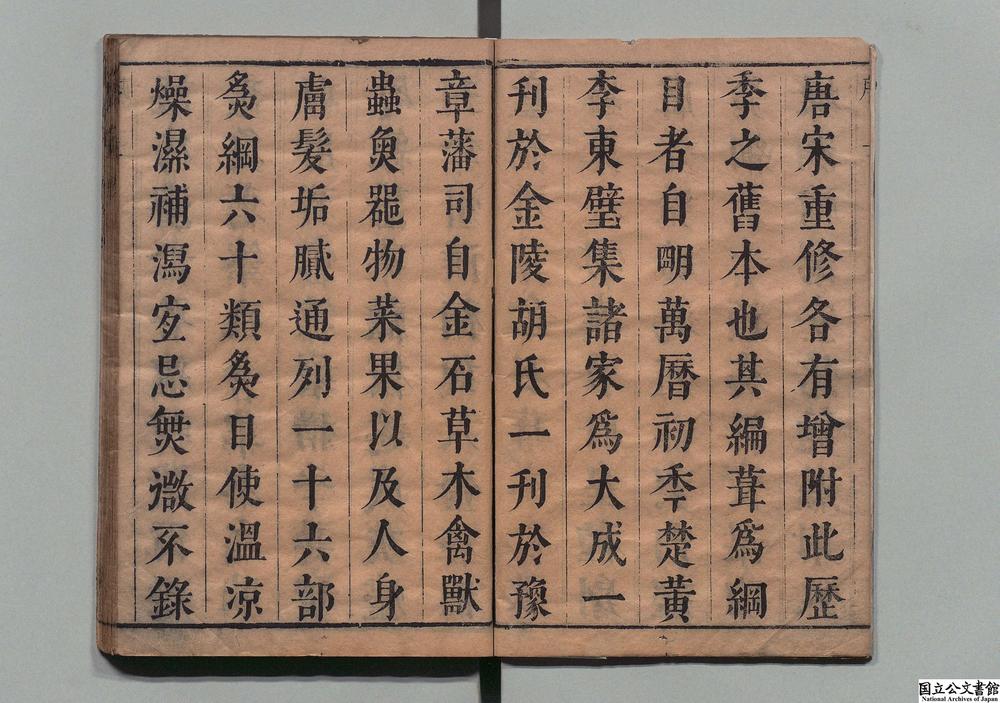 唐宋重修各有增附此歷
季之舊本也其編葺為綱
目者自朙萬曆初季楚黃
李東璧集諸家為大成一
刊於金陵胡氏一刊於豫
章藩司自金石草木禽獸
蟲魚器物菜果以及人身
膚髮垢膩通列一十六部
為綱六十類為目使溫涼
燥濕補瀉宜忌無微不錄
国立公文書館
National Archives of Japan